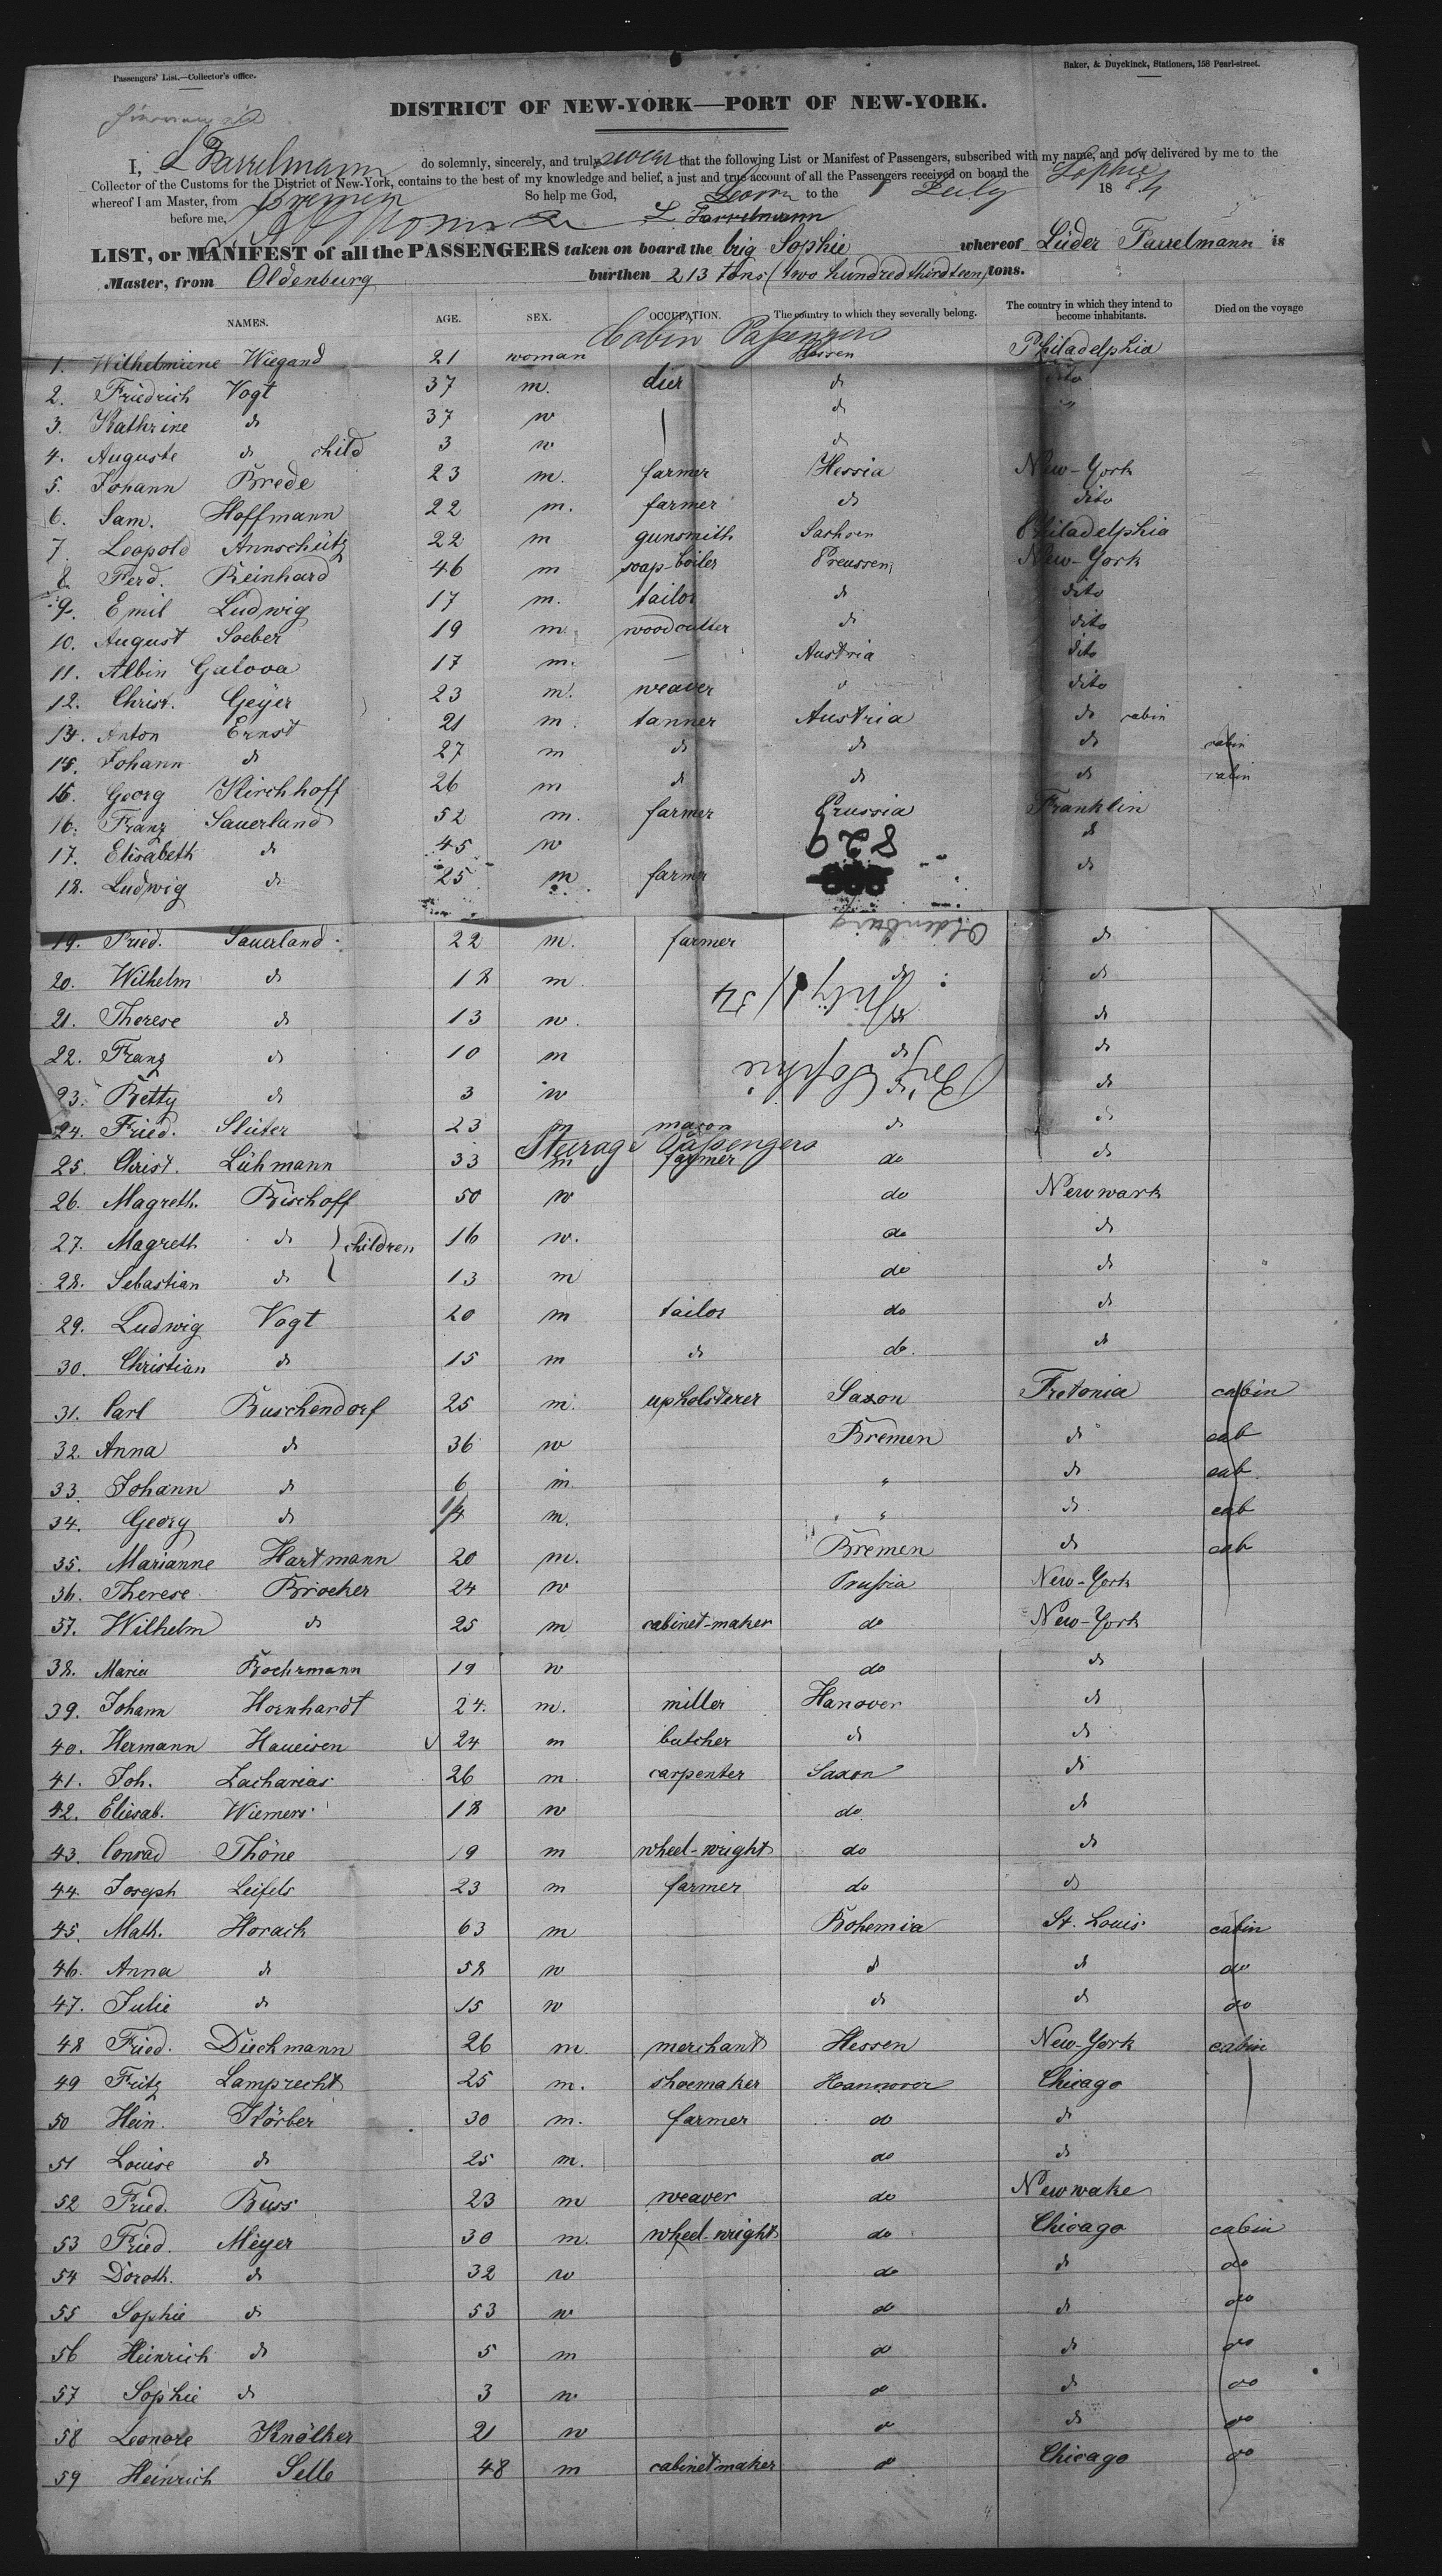 Passengers' List.—Collector's office.
Baker, & Duyckinck, Stationers, 158 Pearl-street.
DISTRICT OF NEW-YORK—PORT OF NEW-YORK.
I, do solemnly, sincerely, and truly swear that the following List or Manifest of Passengers, subscribed with my name, and now delivered by me to the
Collector of the Customs for the District of New-York, contains to the best of my knowledge and belief, a just and true account of all the Passengers received on board the Sophie
whereof I am Master, from Bremen So help me God, to the 18 54
before me,
LIST, or MANIFEST of all the PASSENGERS taken on board the brig Sophie whereof Lüder is
Master, from Oldenburg burthen 213 tons (two hundred thirdteen) tons.
NAMES. AGE. SEX. OCCUPATION. The country to which they severally belong. The country in which they intend to become inhabitants. Died on the voyage
Cabin Passengers
1. Wilhelmiene Wiegand 21 woman Hessen Philadelphia
2. Friedrich Vogt 37 m. dier do dito
3. Kathrine do 37 w do "
4. Auguste do child 3 w do
5. Johann Brede 23 m. farmer Hessia New-York
6. Sam. Hoffmann 22 m. farmer do dito
7. Leopold Annschütz 22 m gunsmith Sachsen Philadelphia
8. Ferd. Reinhard 46 m soap-boiler Preussen New-York
9. Emil Ludwig 17 m. tailor do dito
10. August Soeber 19 m. woodcutter do dito
11. Albin Galova 17 m. — Austria dito
12. Christ. Geÿer 23 m. weaver dito
14. Anton Ernst 21 m. tanner Austria do cabin
15. Johann do 27 m do do do cabin
Georg Kirchhoff 26 m do do do cabin
16. Franz Sauerland 52 m. farmer Prussia Franklin
17. Elisabeth do 45 w do
829
18. Ludwig do 25 m farmer do
Oldenburg
19. Fried. Sauerland 22 m. farmer do
20. Wilhelm do 18 m do do
July 54
21. Therese do 13 w. do do
22. Franz do 10 m do do
Brig Sophie
23. Betty do 3 w do do
24. Fried. Slüter 23 m mason do do
Steurage Passengers
25. Christ. Lühmann 33 m farmer do do
26. Magreth. Bischoff 50 w do Newwark
27. Magreth do } children 16 w. do do
28. Sebastian do 13 m do do
29. Ludwig Vogt 20 m tailor do do
30. Christian do 15 m do do. do
31. Carl Buschendorf 25 m. upholsterer Saxon Fretonia cabin
32. Anna do 36 w Bremen do cab
33. Johann do 6 m " do cab
34. Georg do 1/4 m. " do cab
35. Marianne Hartmann 20 m. Bremen do cab
36. Therese Briocher 24 w Prussia New-York
37. Wilhelm do 25 m cabinet-maker do New-York
38. Maria Boehrmann 19 w do do
39. Johann Hornhardt 24. m. miller Hanover do
40. Hermann Haueisen 24 m butcher do do
41. Joh. Zacharias 26 m carpenter Saxon do
42. Eliesab. Wiemers 18 w do do
43. Conrad Thöne 19 m wheel-wright do do
44. Joseph Leifels 23 m farmer do do
45. Math. Horack 63 m Bohemia St. Louis cabin
46. Anna do 58 w do do do
47. Julie do 15 w do do do
48 Fried. Dieckmann 26 m. merchant Hessen New-York cabin
49 Fritz Lamprecht 25 m. shoemaker Hannover Chicago
50 Hein. Körber 30 m. farmer do do
51 Louise do 25 m. do do
52 Fried. Buss 23 m weaver do Newwake
53 Fried. Meyer 30 m. wheel-wright do Chicago cabin
54 Doroth. do 32 w do do do
55 Sophie do 53 w do do do
56 Heinrich do 5 m do do do
57 Sophie do 3 w do do do
58 Leonore Knölker 21 w do do do
59 Heinrich Selle 48 m cabinetmaker do Chicago do